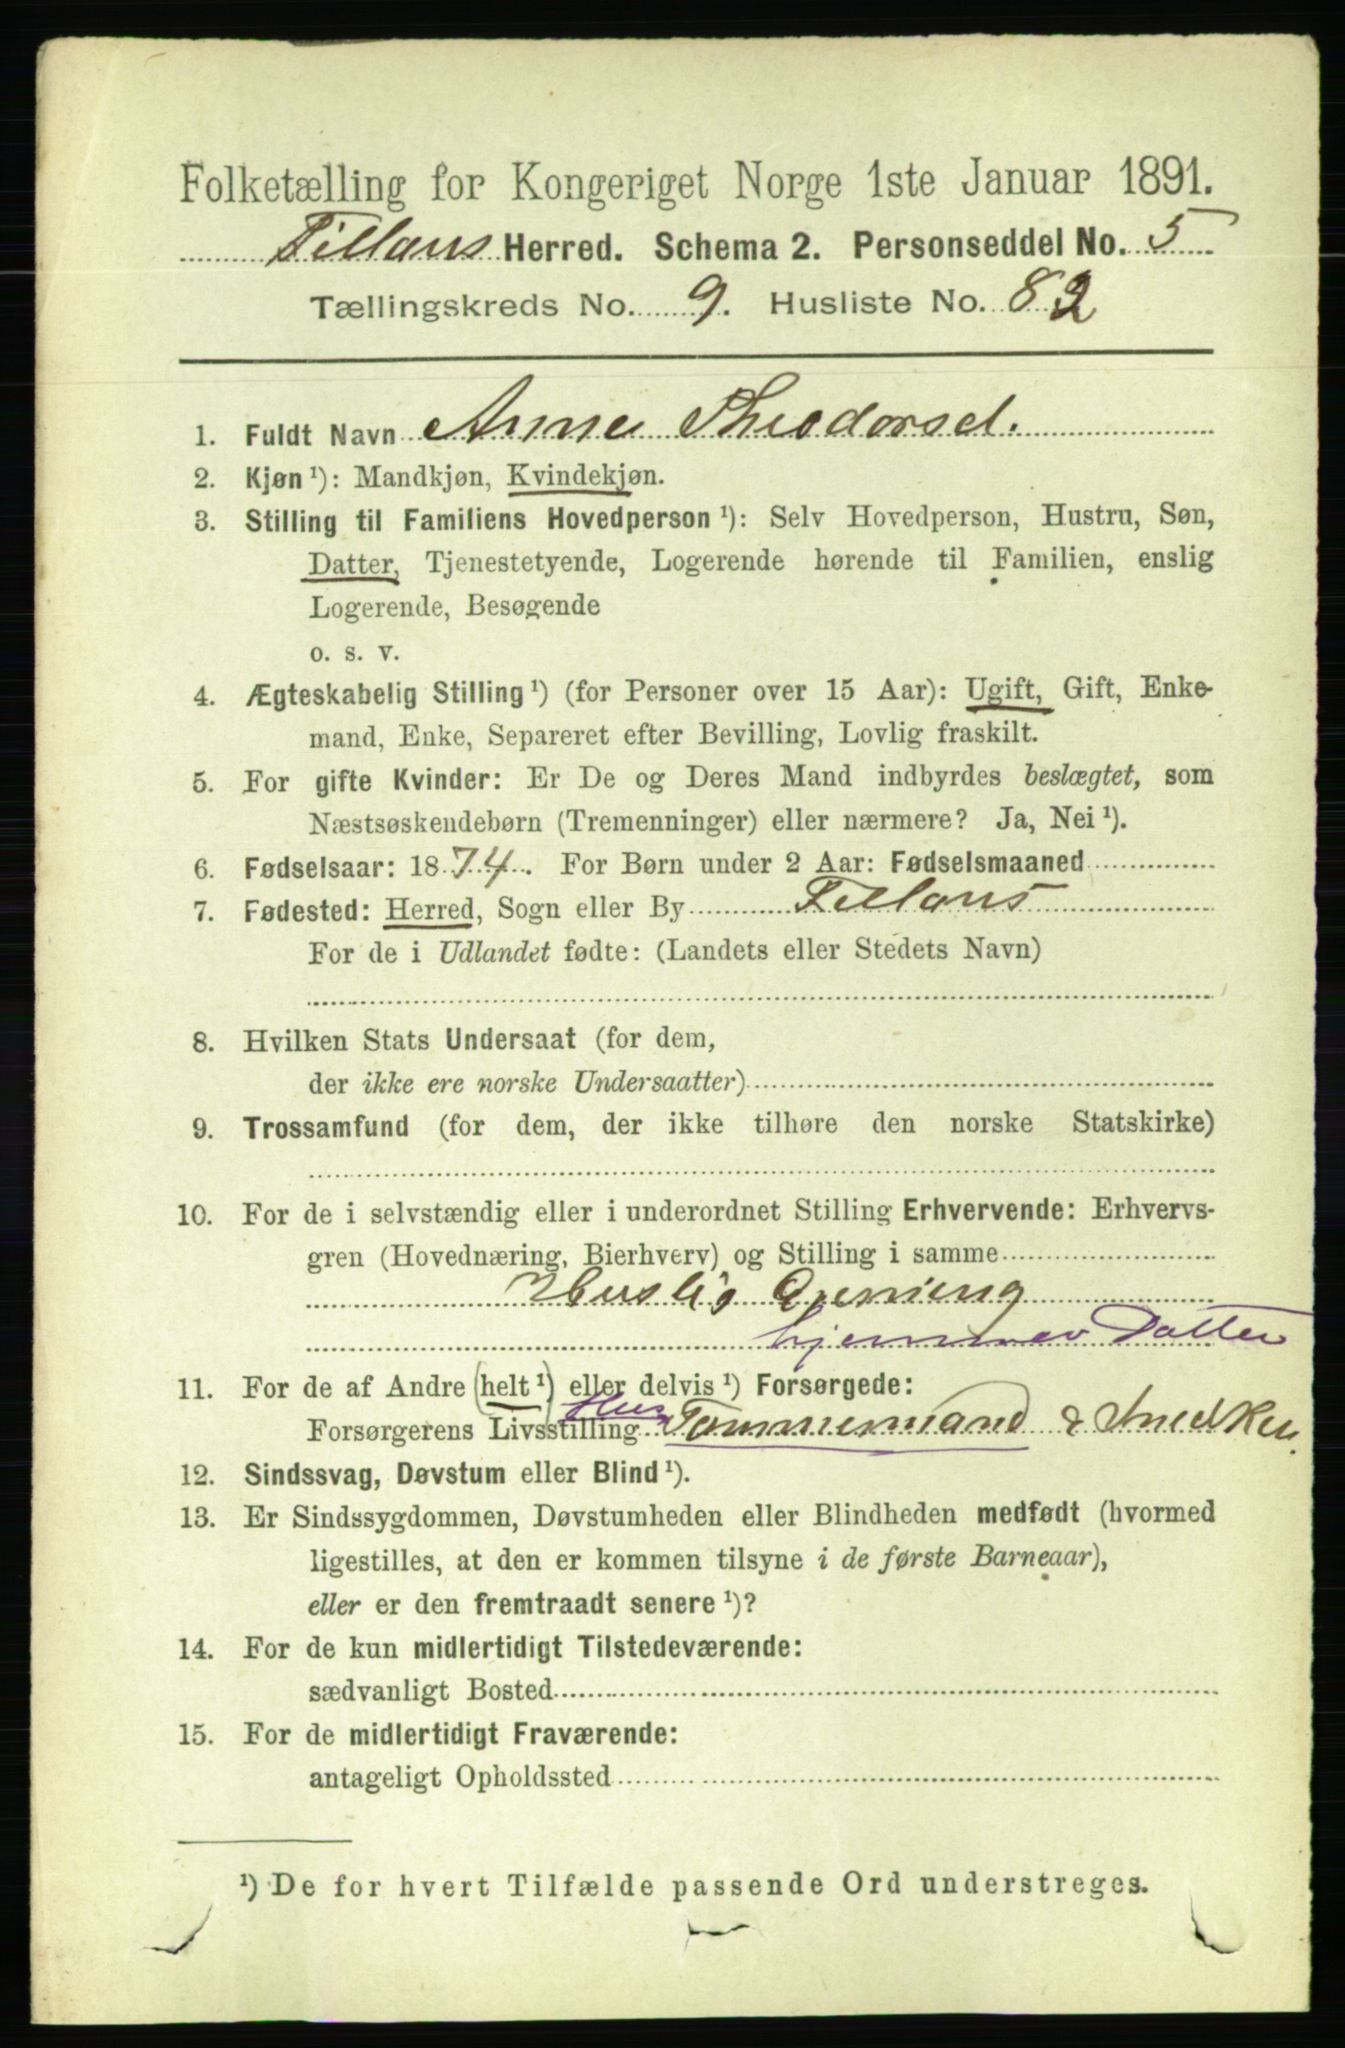 Folketælling for Kongeriget Norge 1ste Januar 1891.
Fillans Herred. Schema 2. Personseddel No. 5
Tællingskreds No. 9. Husliste No. 82
1. Fuldt Navn Anna Theodorsd.
2. Kjøn ¹): Mandkjøn, Kvindekjøn.
3. Stilling til Familiens Hovedperson ¹): Selv Hovedperson, Hustru, Søn,
Datter, Tjenestetyende, Logerende hørende til Familien, enslig
Logerende, Besøgende
o. s. v.
4. Ægteskabelig Stilling ¹) (for Personer over 15 Aar): Ugift, Gift, Enke-
mand, Enke, Separeret efter Bevilling, Lovlig fraskilt.
5. For gifte Kvinder: Er De og Deres Mand indbyrdes beslægtet, som
Næstsøskendebørn (Tremenninger) eller nærmere? Ja, Nei ¹).
6. Fødselsaar: 1874. For Børn under 2 Aar: Fødselsmaaned
7. Fødested: Herred, Sogn eller By Fillans
For de i Udlandet fødte: (Landets eller Stedets Navn)
8. Hvilken Stats Undersaat (for dem,
der ikke ere norske Undersaatter)
9. Trossamfund (for dem, der ikke tilhøre den norske Statskirke)
10. For de i selvstændig eller i underordnet Stilling Erhvervende: Erhvervs-
gren (Hovednæring, Bierhverv) og Stilling i samme
Huslig Gjerning
hjemmev Datter
11. For de af Andre (helt ¹) eller delvis ¹) Forsørgede:
Forsørgerens Livsstilling Hus Tømmermand & Snedker.
12. Sindssvag, Døvstum eller Blind ¹).
13. Er Sindssygdommen, Døvstumheden eller Blindheden medfødt (hvormed
ligestilles, at den er kommen tilsyne i de første Barneaar),
eller er den fremtraadt senere ¹)?
14. For de kun midlertidigt Tilstedeværende:
sædvanligt Bosted
15. For de midlertidigt Fraværende:
antageligt Opholdssted
¹) De for hvert Tilfælde passende Ord understreges.